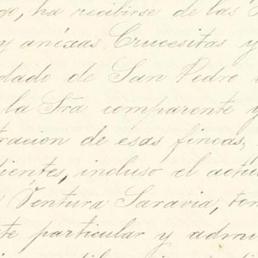 go, ha recibirse de las
y anéxas Crucesitas y
dado de San Pedro
la Sra compareciente y
tracion de esas fincas,
dientes, incluso el actu
Ventura Saravia, ten
te particular y admi